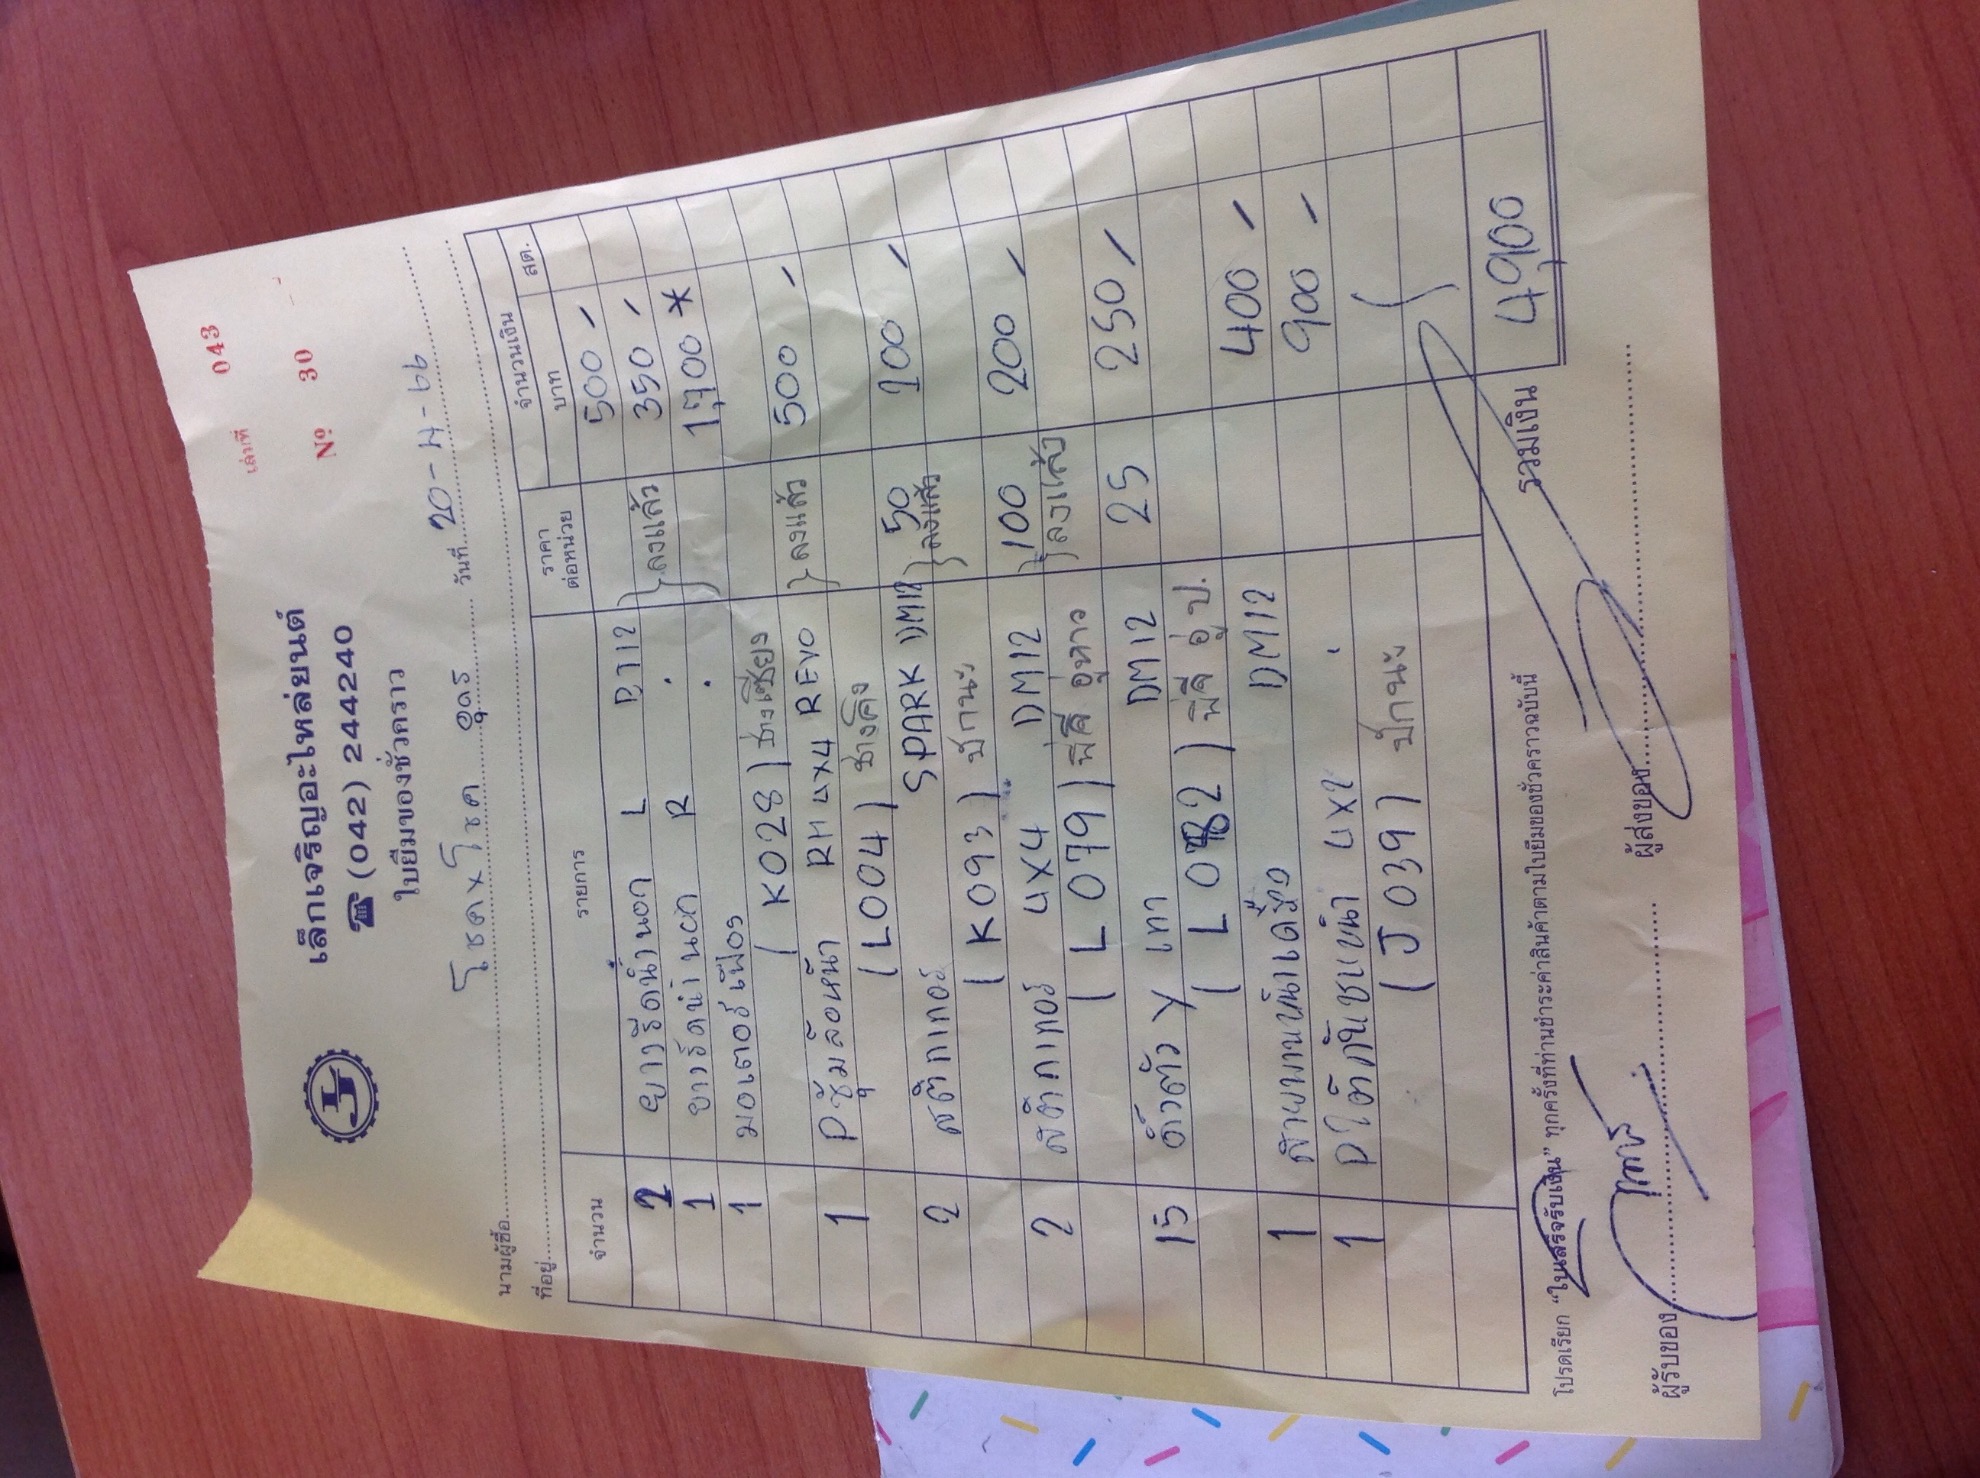 เล่มที่ 043
เล็กเจริญอะไหล่ยนต์
☎ (042) 244240
ใบยืมของชั่วคราว
Nº 30
นามผู้ซื้อ โชคxโชค อุดร วันที่ 20-4-66
ที่อยู่
จำนวน รายการ ราคาต่อหน่วย จำนวนเงิน
บาท สต.
2 ยางรีดน้ำนอก L 500 -
1 ยางรีดน้ำนอก R } ลงแล้ว 350 -
1 มอเตอร์เฟือง 1,700 *
(K028) ช่างเชียง
1 Pซุ้มล้อหน้า RH 4x4 REVO } ลงแล้ว 500 -
(L004)
2 สติกเกอร์ SPARK DM12 50 100 -
(K093) ปกนะ } ลงแล้ว
2 สติกเกอร์ 4x4 DM12 100 200 -
(L079) พี่สี อู่หาว } ลงแล้ว
15 ตัว Y เทา DM12 25 250 -
(L082)
1 DM12 400 -
1 4x2 900 -
(J039) ปกนะ
รวมเงิน 4900
โปรดเรียก "ใบเสร็จรับเงิน" ทุกครั้งที่ท่านชำระค่าสินค้าตามใบยืมของชั่วคราวฉบับนี้
ผู้รับของ ผู้ส่งของ